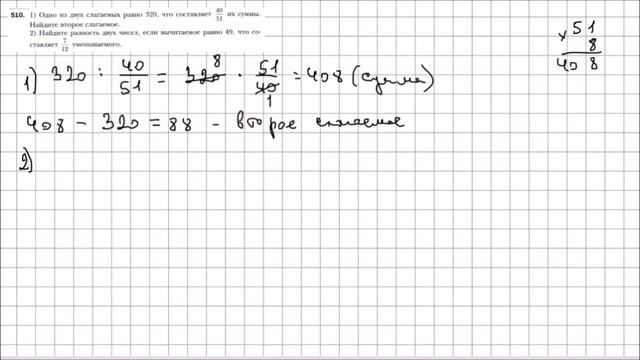 510. 1) Одно из двух слагаемых равно 320, что составляет 40/51 их суммы.
Найдите второе слагаемое.
2) Найдите разность двух чисел, если вычитаемое равно 49, что со-
ставляет 7/12 уменьшаемого.
× 51
8
408
1) 320 : 40/51 = 320 8 · 51/40 1 = 408 (сумма)
408 - 320 = 88 - второе слагаемое
2)